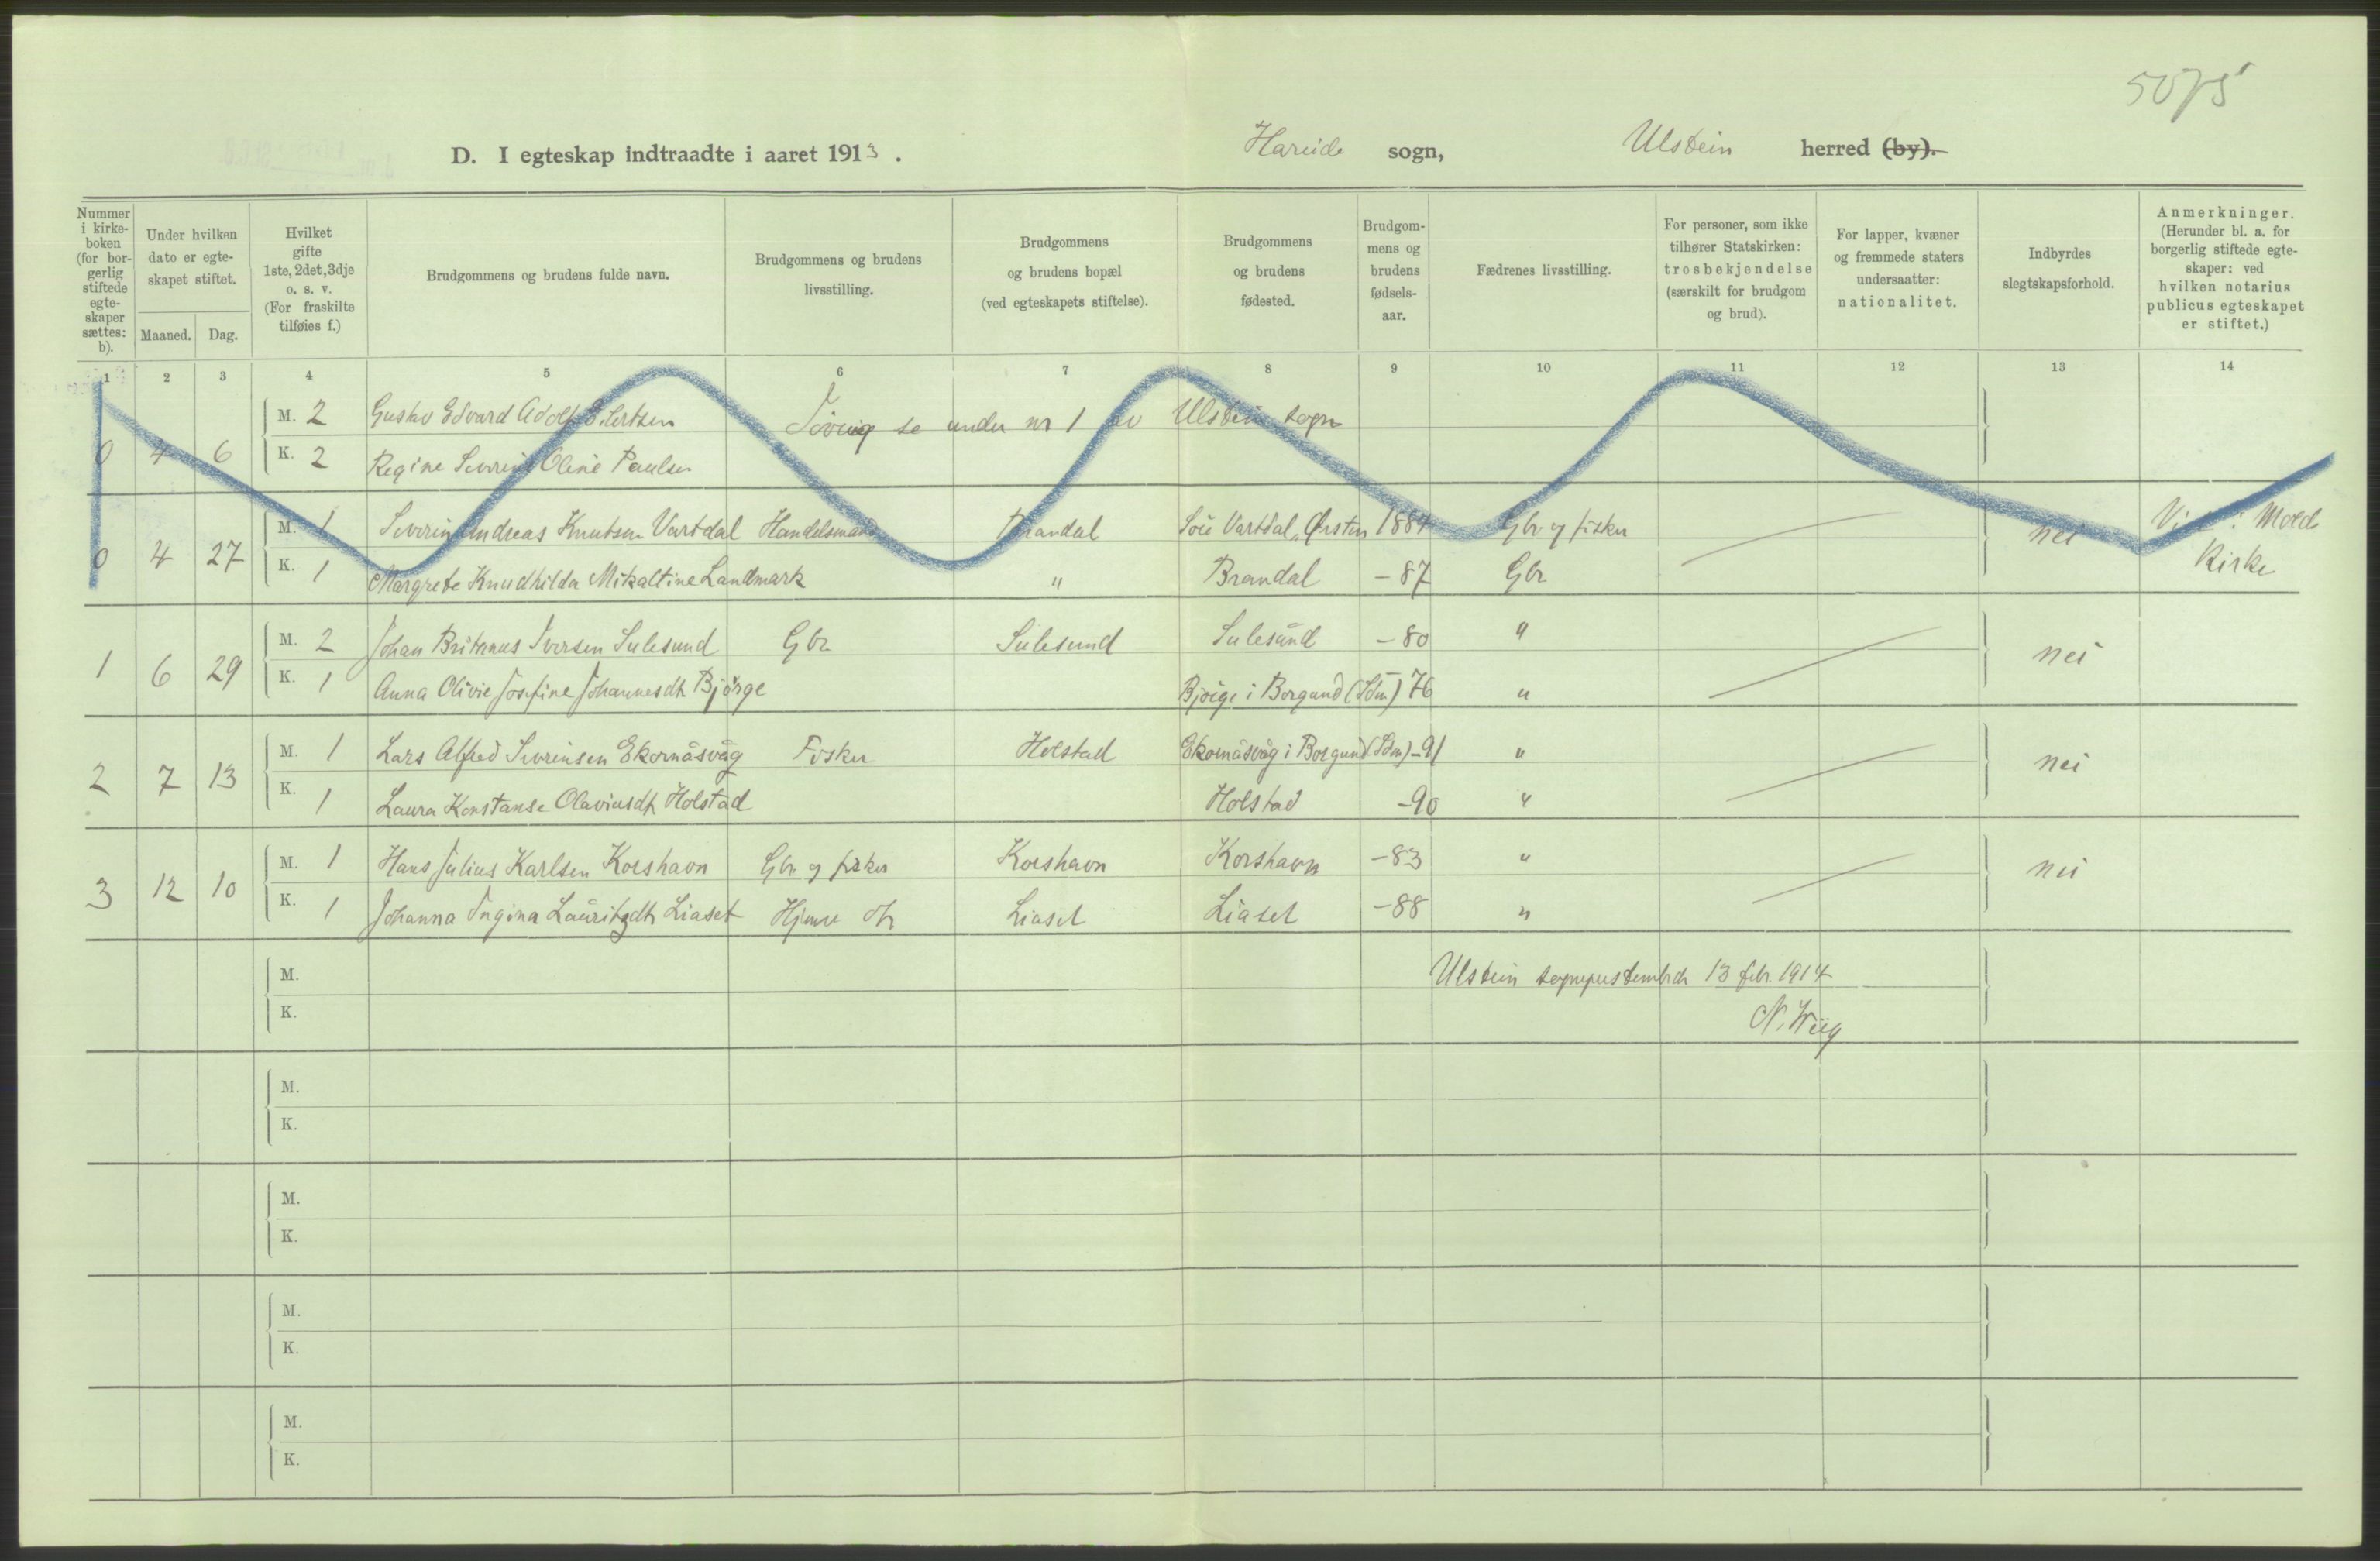 5075
D. I egteskap indtraadte i aaret 1913. Hareide sogn, Ulstein herred (by).
Nummer i kirkeboken (for borgerlig stiftede egteskaper sættes: b).
Under hvilken dato er egteskapet stiftet.
Maaned. Dag.
Hvilket gifte 1ste, 2det, 3dje o. s. v. (For fraskilte tilføies f.)
Brudgommens og brudens fulde navn.
Brudgommens og brudens livsstilling.
Brudgommens og brudens bopæl (ved egteskapets stiftelse).
Brudgommens og brudens fødested.
Brudgommens og brudens fødselsaar.
Fædrenes livsstilling.
For personer, som ikke tilhører Statskirken: trosbekjendelse (særskilt for brudgom og brud).
For lapper, kvæner og fremmede staters undersaatter: nationalitet.
Indbyrdes slegtskapsforhold.
Anmerkninger. (Herunder bl. a. for borgerlig stiftede egteskaper: ved hvilken notarius publicus egteskapet er stiftet.)
1 2 3 4 5 6 7 8 9 10 11 12 13 14
0 4 6 M. 2 Gustav Edvard Adolf Eilertsen Iøvrig se under nr 1 av Ulstein sogn
K. 2 Regine Severine Oline Paulsen
0 4 27 M. 1 Severin Andreas Knutsen Vartdal Handelsmand Brandal Vartdal, Ørsten 1884 Gbr og fisker nei Mold
K. 1 Margrete Knudhilda Mikaltine Landmark " Brandal -87 Gbr Kirke
1 6 29 M. 2 Johan Britanus Iversen Sulesund Gbr Sulesund Sulesund -80 " nei
K. 1 Anna Olivie Josefine Johannesdt Bjørge Bjørge i Borgund (Sdm) 76 "
2 7 13 M. 1 Lars Alfred Severinsen Ekornåsvåg Fisker Holstad Ekornåsvåg i Borgund (Sdm) -91 " nei
K. 1 Laura Konstanse Olaviusdt Holstad Holstad -90 "
3 12 10 M. 1 Hans Julius Karlsen Korshavn Gbr og fisker Korshavn Korshavn -83 " nei
K. 1 Johanna Ingina Lauritzdt Liaset Hjemv dt Liaset Liaset -88 "
M. Ulstein 13 febr. 1914
K. N. Wiig
M.
K.
M.
K.
M.
K.
M.
K.